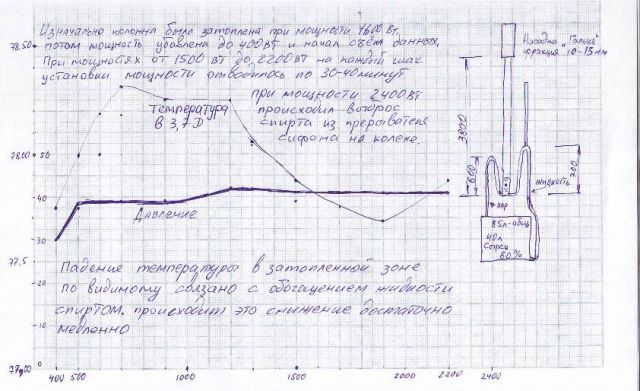 Изначально колонна была затоплена при мощности 1600 Вт,
потом мощность убавлена до 400Вт и начал съём данных,
При мощностях от 1500 Вт до 2200Вт на каждый шаг
установки мощности отводилось по 30-40 минут
при мощности 2400Вт
происходил выброс
спирта из прерывателя
сифона на колене,
Температура
в 3,7 D
Давление
Падение температуры в затопленной зоне
по видимому связано с обогащением жидкости
спиртом. происходит это снижение достаточно
медленно
Насадка "Галька"
фракция 10-15мм
3800
600
300
жидкость
пар
85л-общ
40л
60%
78,50
78,00
77,5
50
40
30
20
10
0
400 500 1000 1500 2000 2200 2400